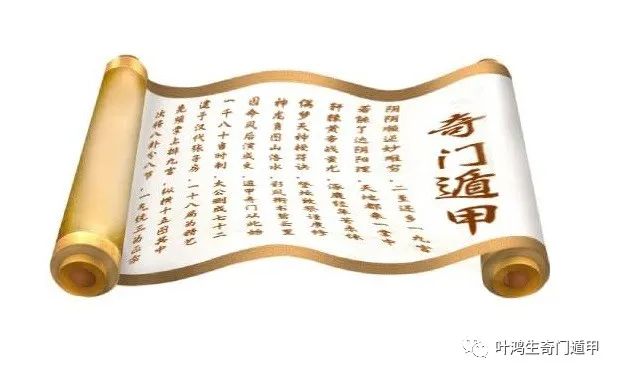 奇门遁甲
阴阳顺逆妙难穷，二至还乡一九宫
若能了达阴阳理，天地都来一掌中
轩辕黄帝战蚩尤，涿鹿经年苦未休
偶梦天神授符诀，登坛致祭谨虔修
神龙负图出洛水，彩凤衔书碧云里
因命风后演成文，遁甲奇门从此始
一千八十当时制，太公删成七十二
逮于汉代张子房，一十八局为精艺
先须掌上排九宫，纵横十五图其中
次将八卦分八节，一气统三为正宗
叶鸿生奇门遁甲